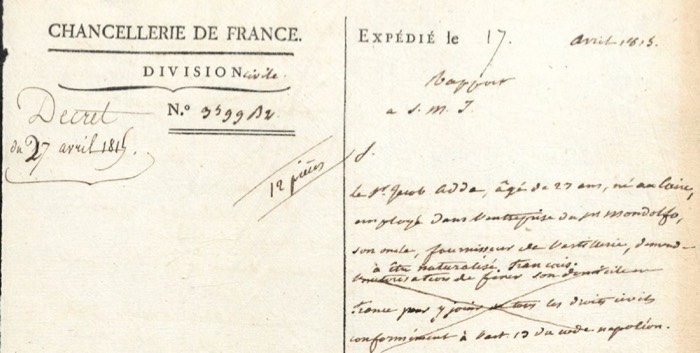 CHANCELLERIE DE FRANCE.
DIVISION civile.
N.º 3599 B2
Décret
du 27 avril 1815
12 pièces
EXPÉDIÉ le 17. avril 1815.
Rapport
a S. M. I.
S.
le Sr. Jacob Adda, âgé de 27 ans, né au Caire,
employé dans l'entreprise du Sr Mondolfo,
son oncle, fournisseur de l'artillerie, demande
à être naturalisé français.
l'autorisation de fixer son domicile en
France pour y jouir de tous les droits civils
conformément à l'art 13 du code napoléon.